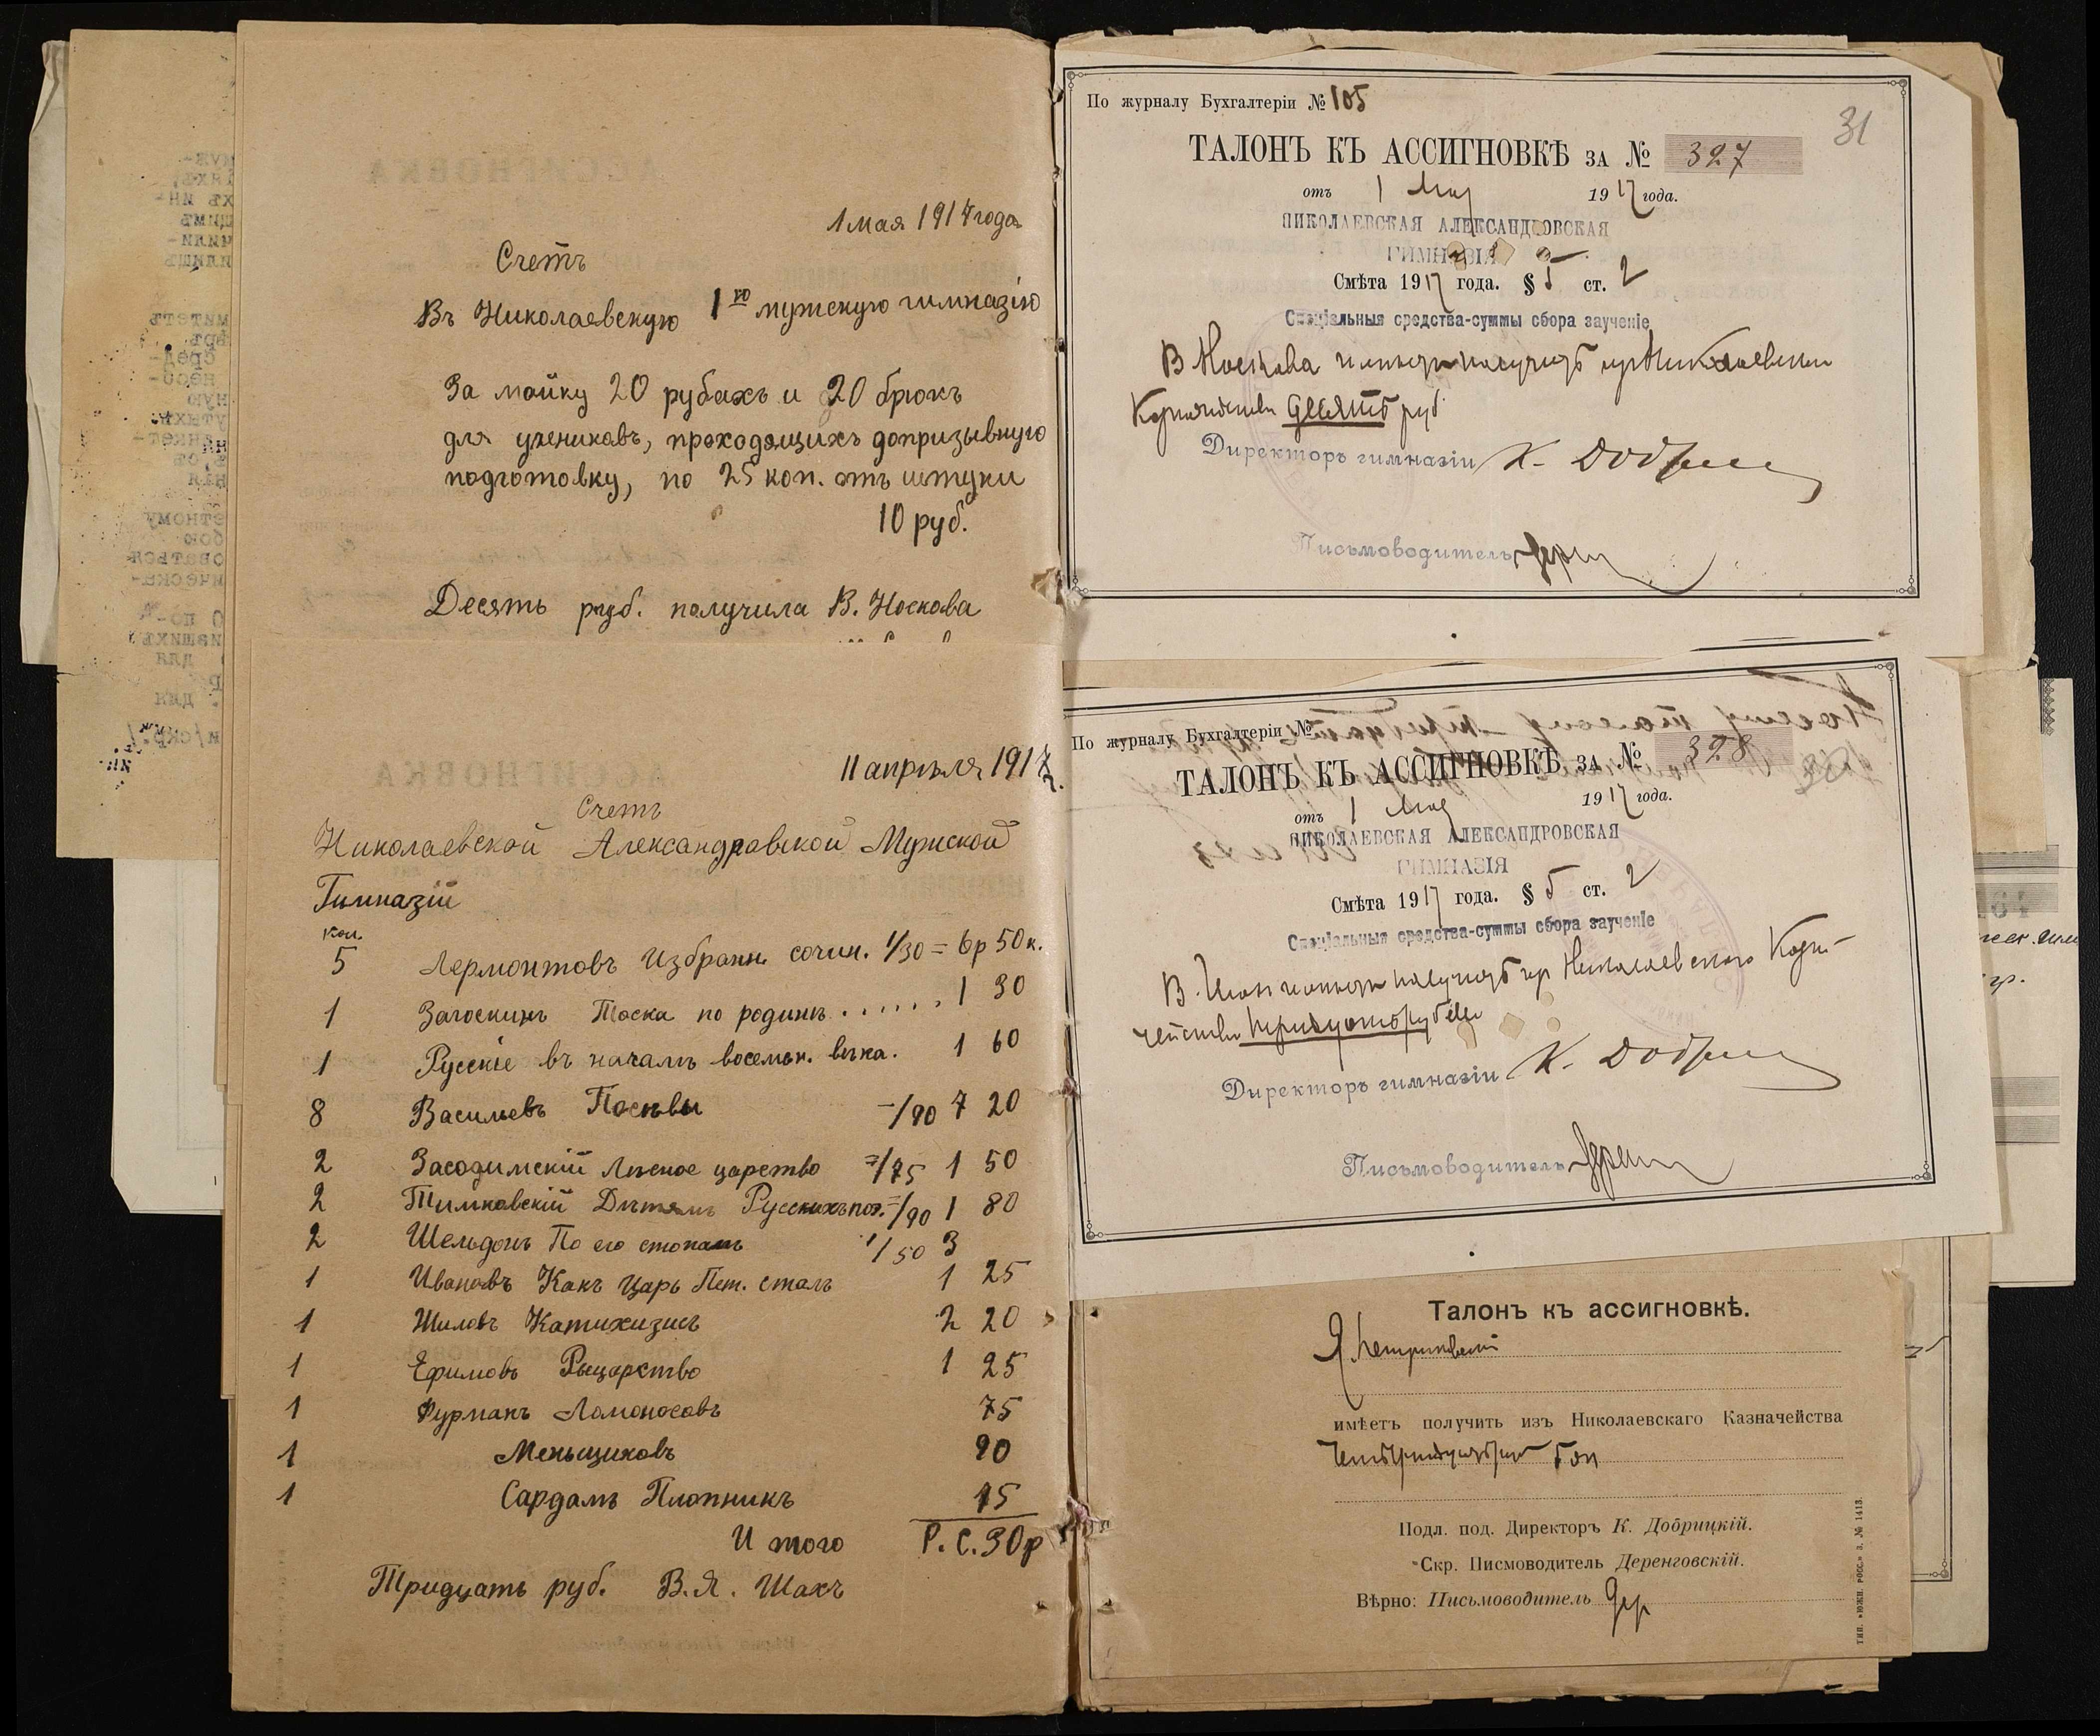 1 мая 1917 года
Счетъ
Въ Николаевскую 1ую мужскую гимназію
За мойку 20 рубахъ и 20 брюкъ
для учениковъ, проходящихъ допризывную
подготовку, по 25 коп. отъ штуки
10 руб.
Десять руб. получила В. Носкова
11 апрѣля 1917 г.
Счетъ
Николаевской Александровской Мужской
Гимназіи
кол.
5 Лермонтовъ Избранн. сочин. 1/30 = 6р 50к.
1 Загоскинъ Тоска по родинѣ . . . . . . 1 30
1 Русскіе въ началѣ восемн. вѣка. 1 60
8 Васильевъ Посѣвы -/90 7 20
2 Засодимскій Лѣсное царство =/75 1 50
2 Тимковскій Дѣтямъ Русскихъ поэ. =/90 1 80
2 Шельдонъ По его стопамъ 1/50 3
1 Ивановъ Какъ Царь Пет. сталъ 1 25
1 Шиловъ Катихизисъ 2 20
1 Ефимовъ Рыцарство 1 25
1 Фурманъ Ломоносовъ 75
1 Меньщиковъ 90
1 Сардамъ Плотникъ 75
Итого Р. С. 30р
Тридцать руб. В. Я. Шахъ
По журналу Бухгалтеріи № 105
31
ТАЛОНЪ КЪ АССИГНОВКѢ за № 327
отъ 1 Мая 1917 года.
НИКОЛАЕВСКАЯ АЛЕКСАНДРОВСКАЯ
ГИМНАЗІЯ
Смѣта 1917 года. § 5 ст. 2
Спеціальныя средства-суммы сбора заученіе
В Носкова имѣетъ получить изъ Николаевскаго
Казначейства десять руб
Директоръ гимназіи К. Добр
Письмоводитель Дерен
По журналу Бухгалтеріи №
ТАЛОНЪ КЪ АССИГНОВКѢ за № 328
отъ 1 Мая 1917 года.
НИКОЛАЕВСКАЯ АЛЕКСАНДРОВСКАЯ
ГИМНАЗІЯ
Смѣта 1917 года. § 5 ст. 2
Спеціальныя средства-суммы сбора заученіе
В. Шахъ имѣетъ получить изъ Николаевского Казна-
чейства тридцать рублей
Директоръ гимназіи К. Добр
Письмоводитель Дерен
Талонъ къ ассигновкѣ.
Я.
имѣетъ получить изъ Николаевскаго Казначейства
Подл. под. Директоръ К. Добрицкій.
Скр. Писмоводитель Деренговскій.
Вѣрно: Письмоводитель Дер
ТИП. «ЮЖН. РОСС.» З. № 1413.